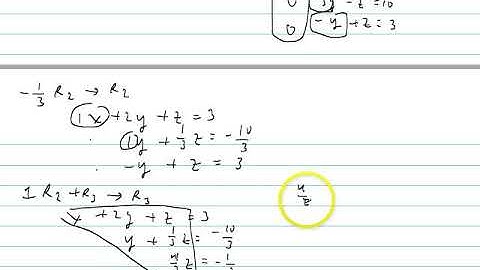 0 -3y -z = 10
0 -y + z = 3
-1/3 R₂ → R₂
1x + 2y + z = 3
1y + 1/3 z = -10/3
-y + z = 3
1 R₂ + R₃ → R₃
x + 2y + z = 3
y + 1/3 z = -10/3
4/3 z = -1/3
4/z